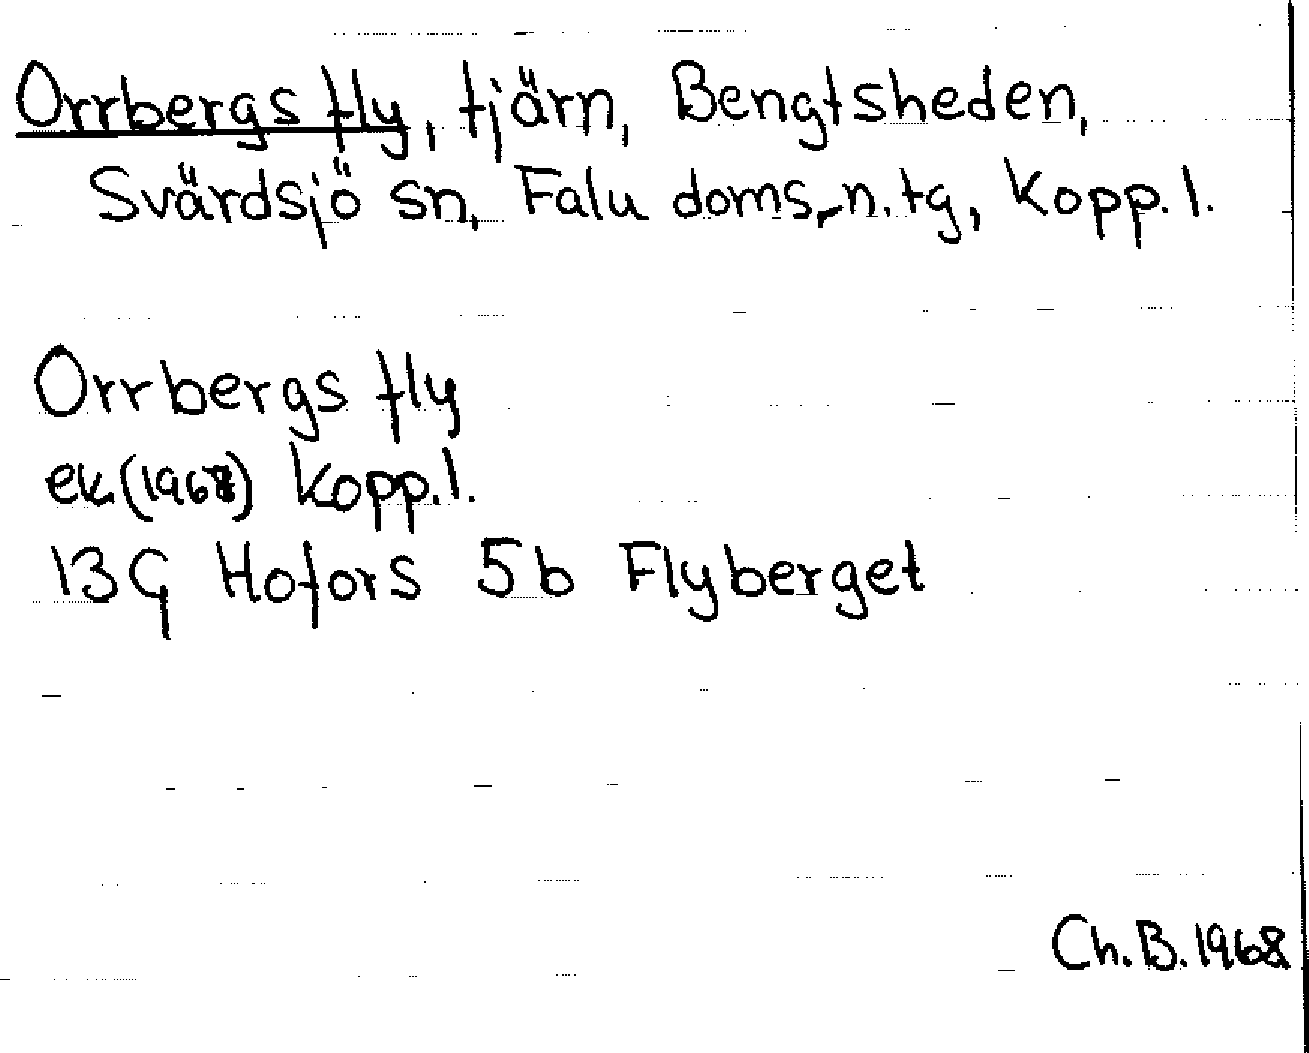 Orrbergs fly, tjärn, Bengtsheden,
Svärdsjö sn, Falu doms. n. tg, Kopp. l.
Orrbergs fly
ek. (1968) Kopp. l.
13G Hofors 5b Flyberget
Ch. B. 1968